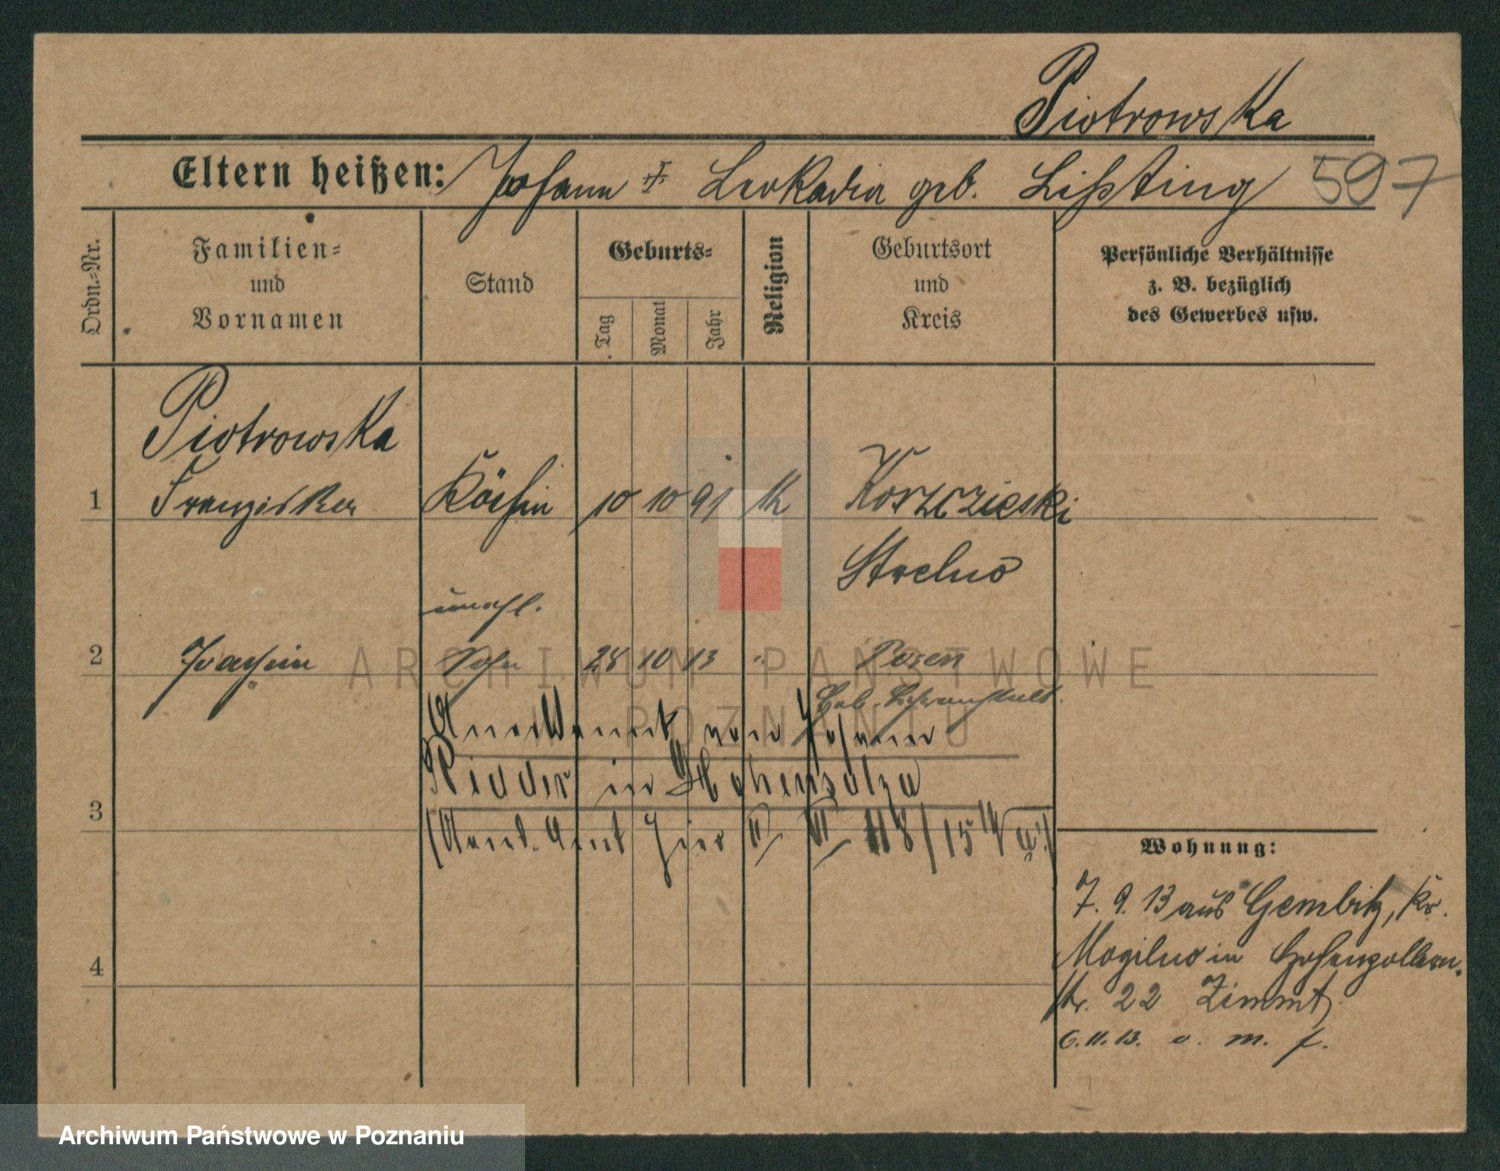 Piotrowska
Eltern heißen: Johann + Leokadia geb. Lißting 597
Ordn.-Nr.
Familien-
und
Vornamen
Stand
Geburts-
Tag
Monat
Jahr
Religion
Geburtsort
und
Kreis
Persönliche Verhältnisse
z. B. bezüglich
des Gewerbes usw.
Piotrowska
1 Franziska Köchin 10 10 91 K
Strelno
unehl.
2 Joachim Sohn 28 10 13 " Posen
Anerkannt vom Johann
in Hohensalza
3
Amt hier VI 118/15
Wohnung:
7. 9. 13 aus Gembitz, Kr.
Mogilno in Hohenzollern-
str. 22 Zimmt
6. 11. 13. v. m. f.
4
ARCHIWUM PAŃSTWOWE
W POZNANIU
Archiwum Państwowe w Poznaniu